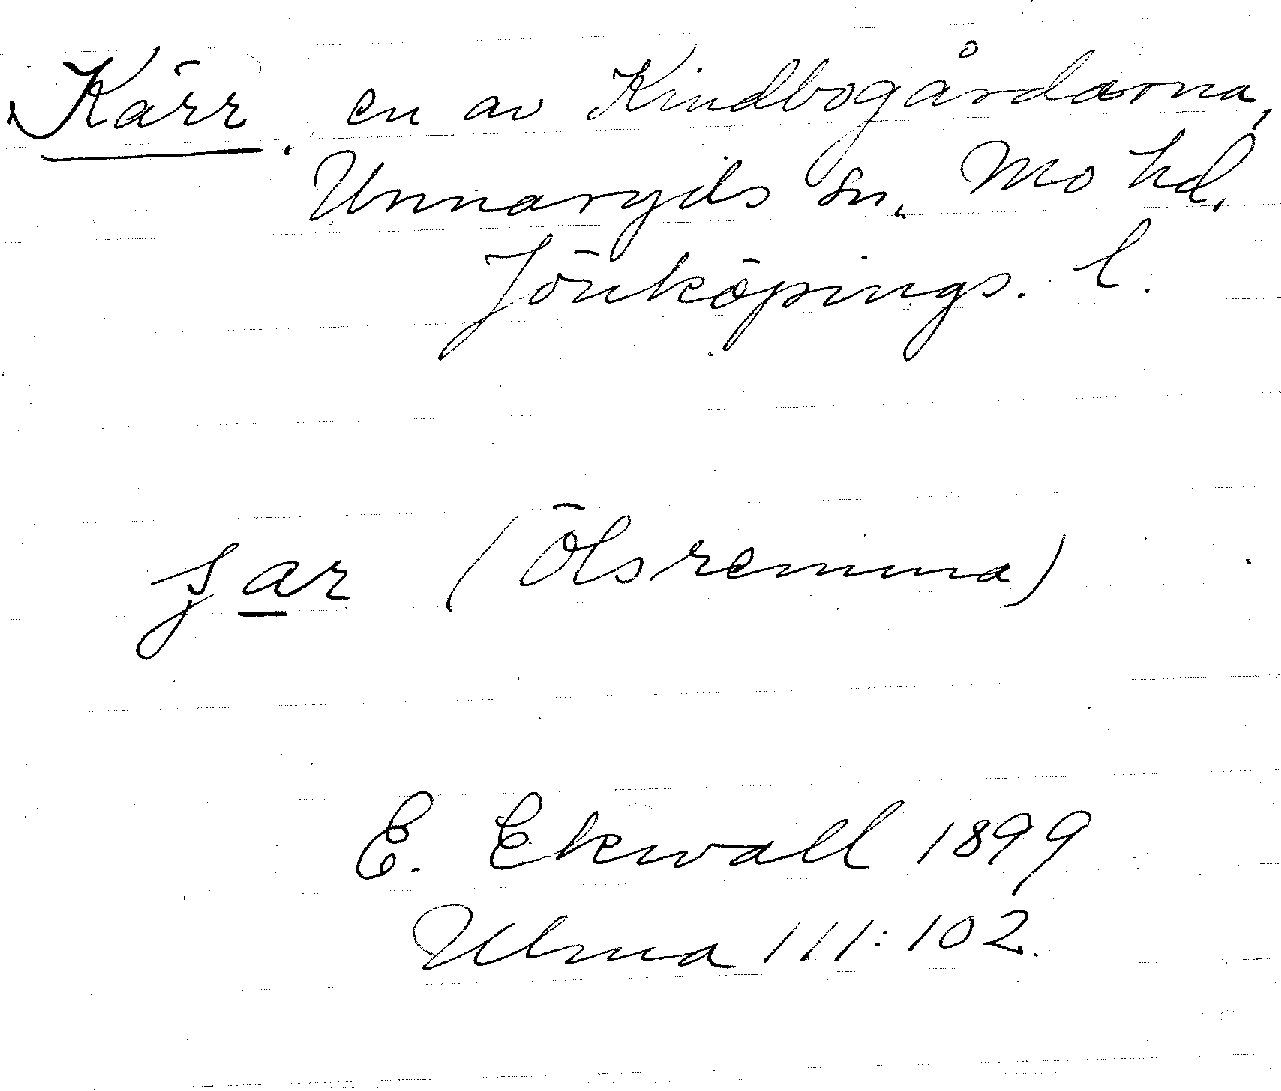 Kärr, en av Kindbogårdarna,
Unnaryds sn. Mo hd.
Jönköpings. l.
ʂar (Ölsremma)
E. Ekwall 1899
Ulma 111:102.